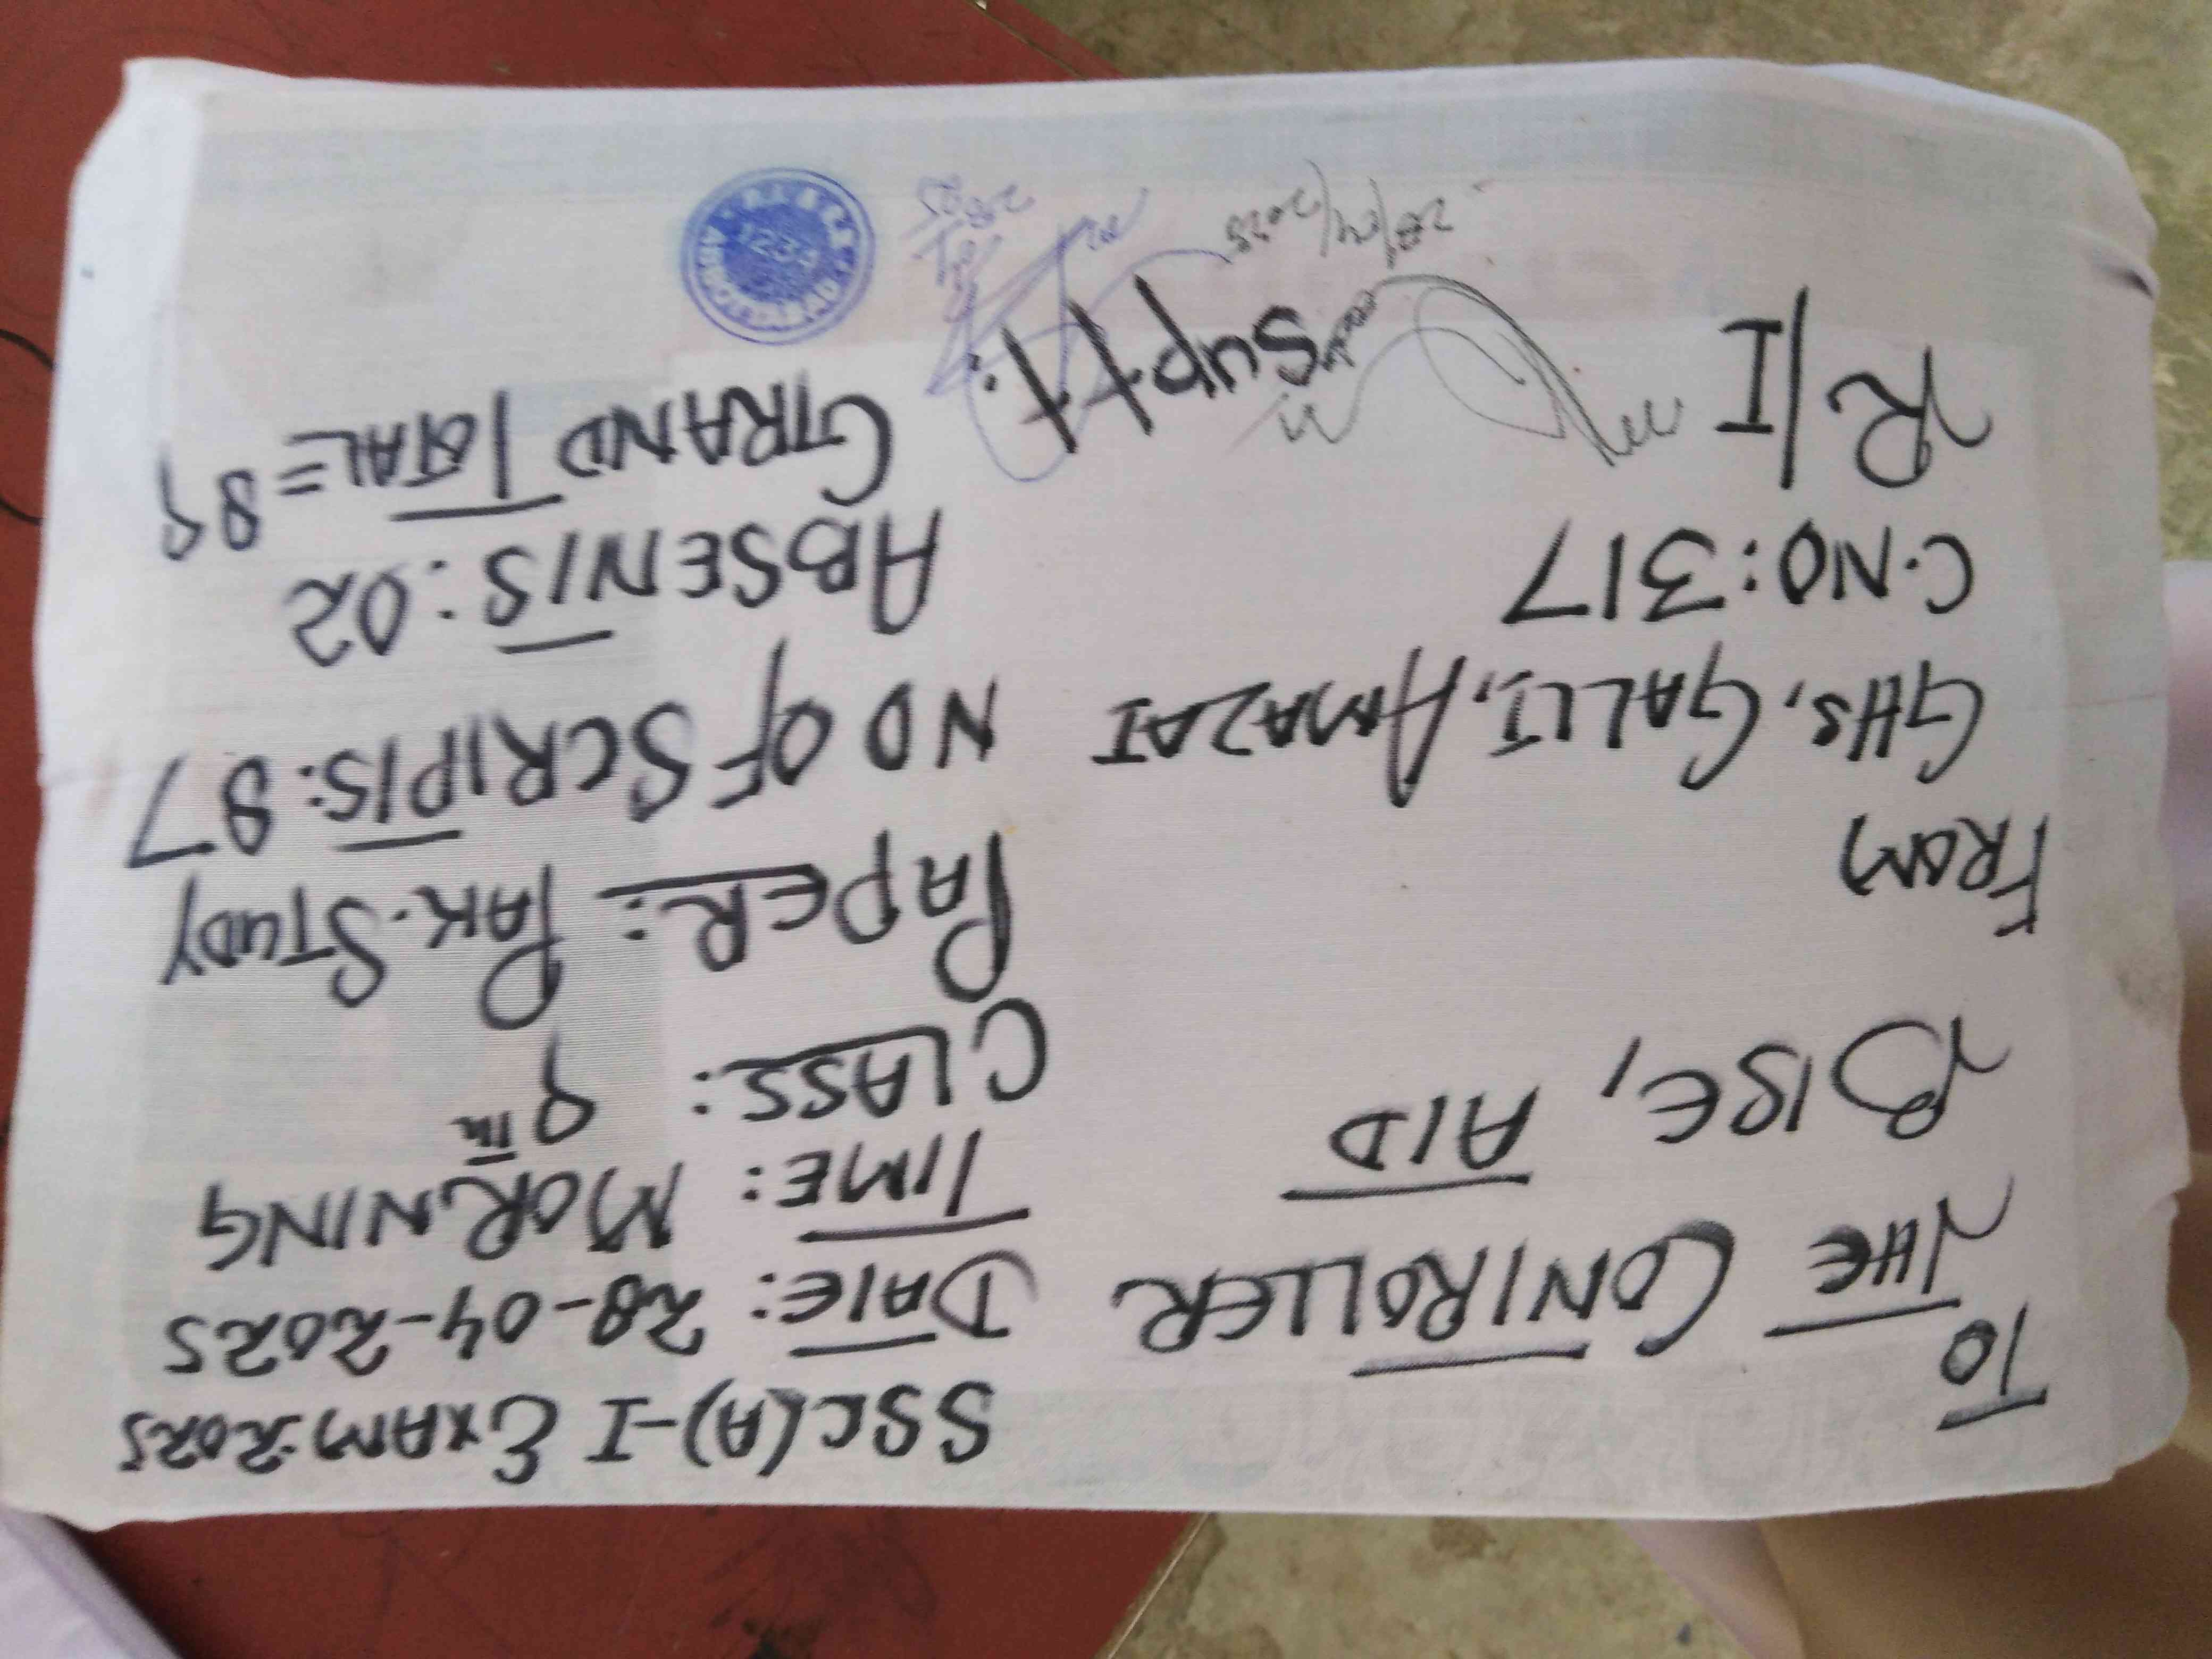 TO
THE CONTROLLER
BISE, ATD
FROM
GHS, GALLI, AMAZAI
C.NO: 317
R/I
Suptt:
28/04/2025
SSC(A)-I EXAM:2025
DATE: 28-04-2025
TIME: MORNING
CLASS: 9TH
PAPER: PAK.STUDY
NO OF SCRIPTS: 87
ABSENTS: 02
GRAND TOTAL = 89
ABBOTTABAD